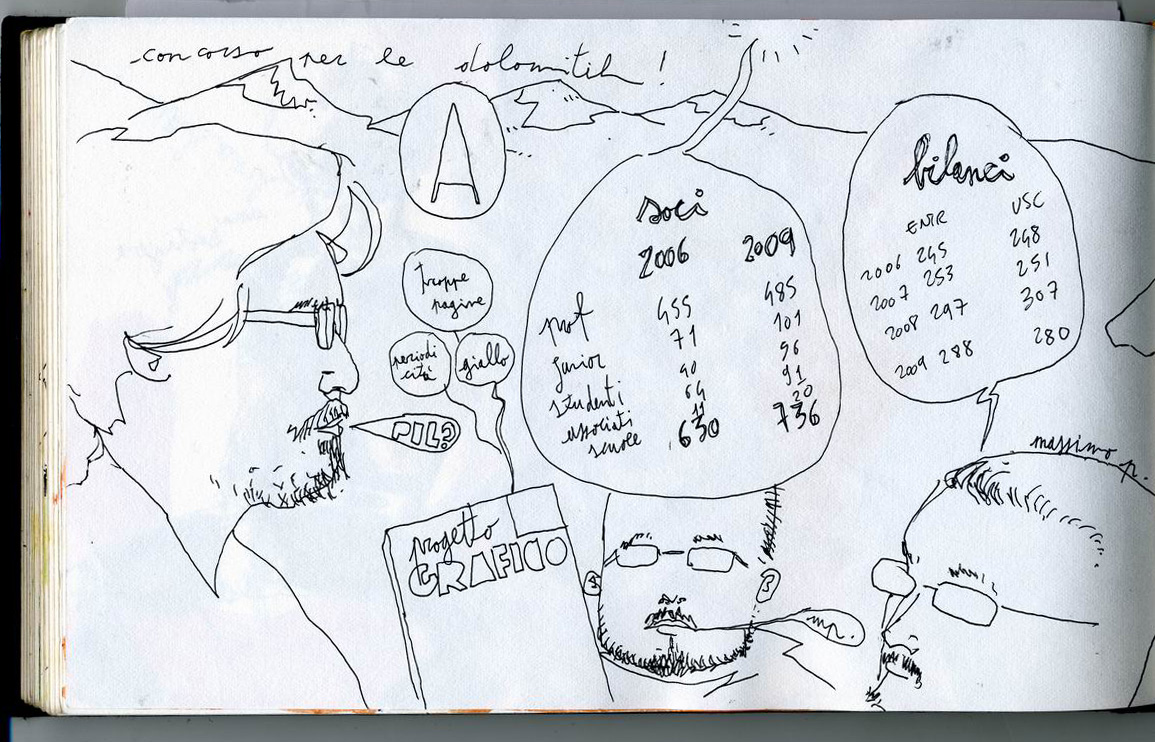 concorso per le dolomiti !
A
troppe
pagine
periodi
cità
giallo
PIL?
progetto
GRAFICO
soci
2006 2009
prof 455 485
junior 71 101
studenti 40 96
associati 64 91
scuole 11 20
630 736
mp.
bilanci
ENTR USC
2006 245 248
2007 253 251
2008 297 307
2009 288 280
massimo p.